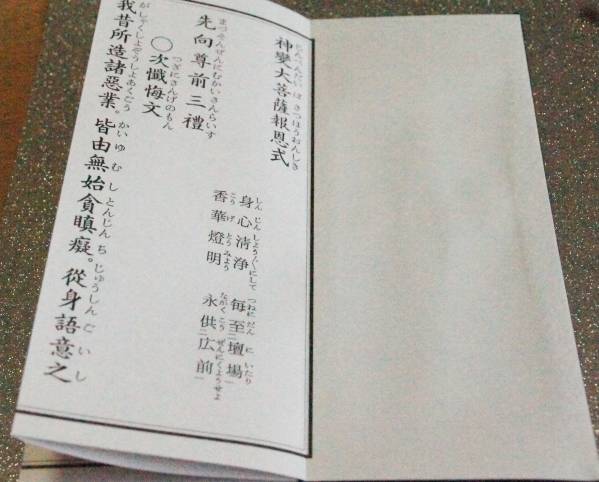 神變大菩薩報恩式
身心清浄 毎至壇場
香華燈明 永供広前
先向尊前三禮
◯次懺悔文
我昔所造諸惡業。皆由無始貪瞋癡。從身語意之